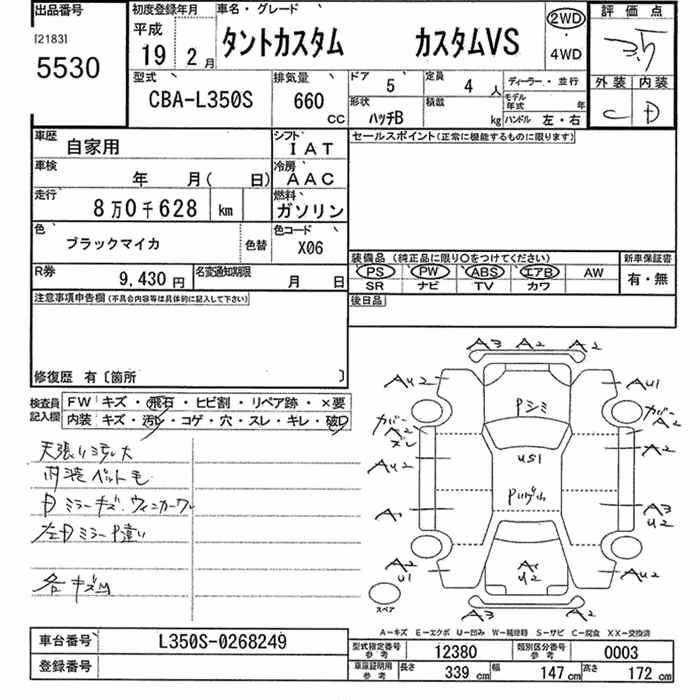 出品番号
[2183]
5530
初度登録年月
平成
19 2月
車名・グレード
タントカスタム カスタムVS
2WD
4WD
評価点
3.5
外装 内装
C D
型式
CBA-L350S
排気量
660
CC
ドア 5
定員 4 人
形状 ハッチB
積載 kg
ディーラー・並行
モデル年式 年
ハンドル 左・右
車歴 自家用
シフト IAT
車検 年 月( 日)
冷房 AAC
走行 8万0千628 km
燃料 ガソリン
色 ブラックマイカ
色替
色コード X06
R券 9,430円
名変通知期限 月 日
セールスポイント(正常に機能するものに限ります)
装備品 (純正品に限り○をつけてください)
PS PW ABS エアB AW
SR ナビ TV カワ
新車保証書
有・無
後日品
注意事項申告欄(不具合内容等は具体的に記入して下さい)
修復歴 有〔箇所 〕
検査員記入欄
FW キズ・飛石・ヒビ割・リペア跡・×要
内装 キズ・汚レ・コゲ・穴・スレ・キレ・破レ
内装ペット毛
Dミラーキズ、ウィンカーワレ
左Dミラー
各キズ凹
A3 A2 A2
AU2
AU1
Pシミ
ガバー
A2
ガバー
A2
AU2
US1
A2
A1
A3
U2
A2
U1
A1
U2
AU2
スペア
A3 A2 A2
A-キズ E-エクボ U-凹み W-補修跡 S-サビ C-腐食 XX-交換済
車台番号 L350S-0268249
登録番号
型式指定番号 参考 12380
類別区分番号 参考 0003
車庫証明用 参考
長さ 339 cm
幅 147 cm
高さ 172 cm